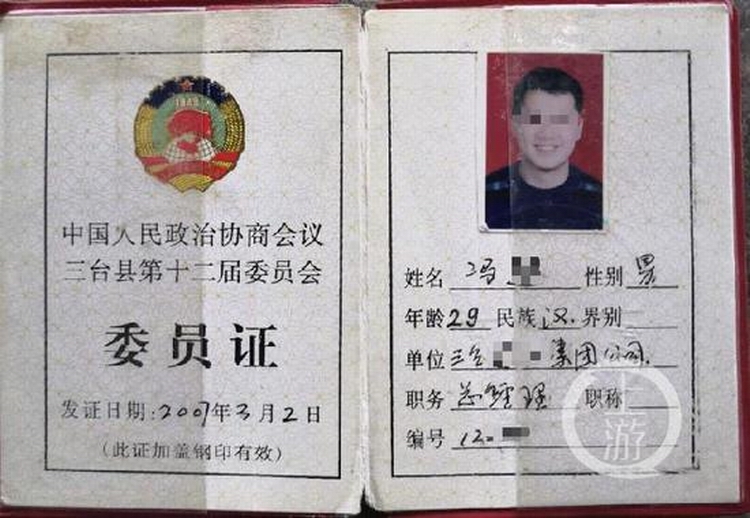 1949
中国人民政治协商会议
三台县第十二届委员会
委员证
发证日期:2007年3月2日
(此证加盖钢印有效)
姓名 冯 性别 男
年龄 29 民族 汉 界别
单位 三台 集团公司
职务 总经理 职称
编号 12-
上游